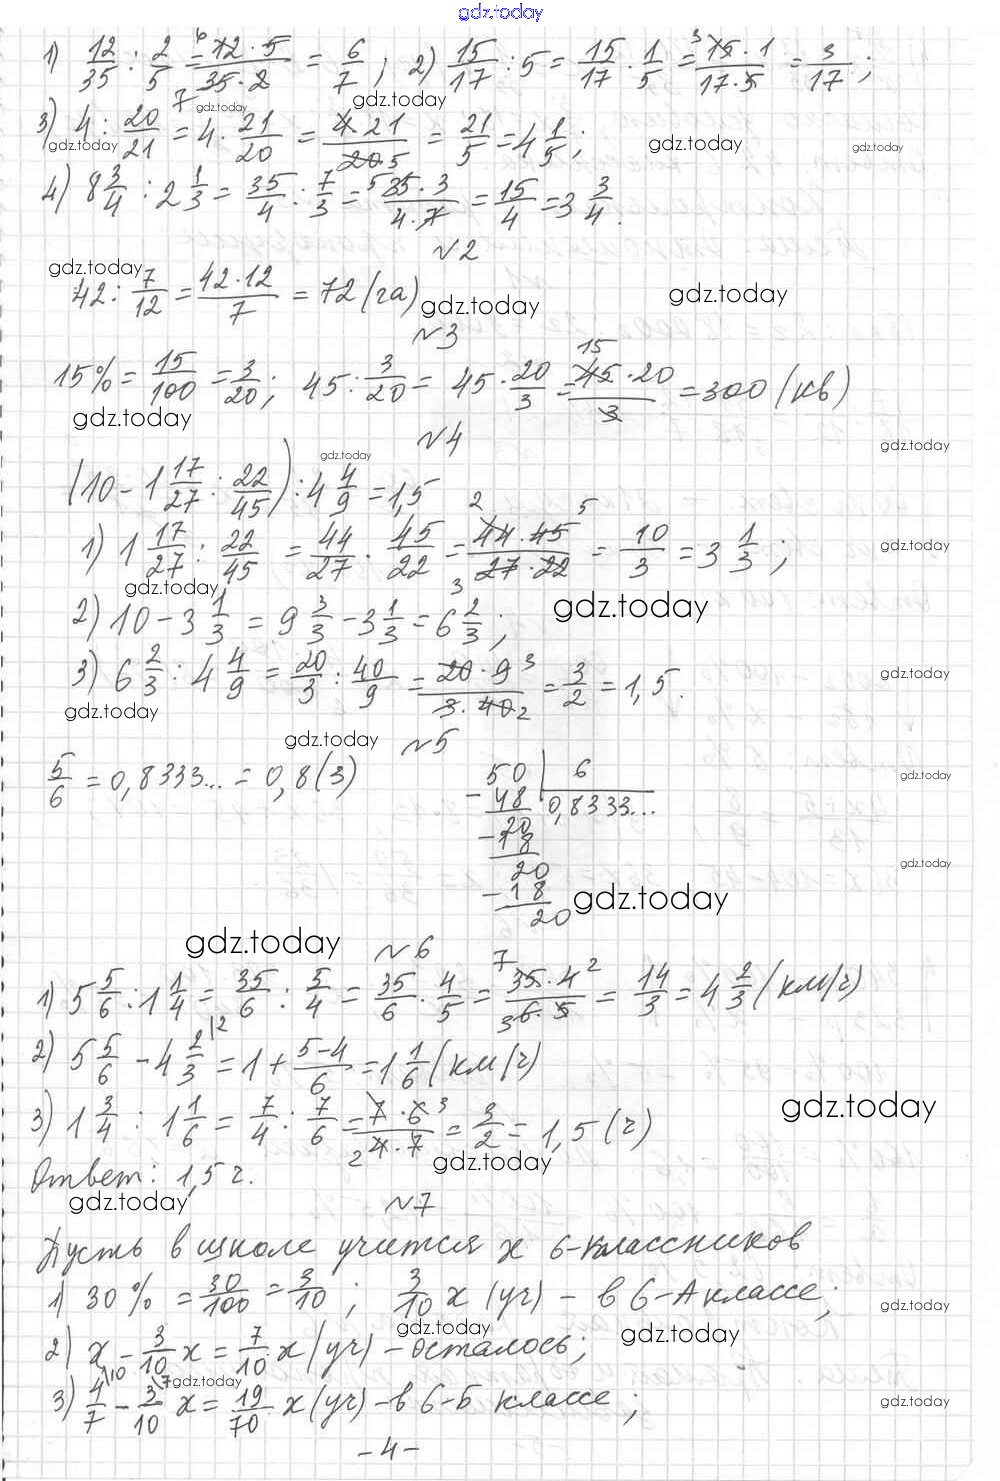 gdz.today
1) 12/35 : 2/5 = 12·5/35·2 = 6/7; 2) 15/17 : 5 = 15/17 · 1/5 = 15·1/17·5 = 3/17;
3) 4 : 20/21 = 4 · 21/20 = 4·21/20 5 = 21/5 = 4 1/5;
4) 8 3/4 : 2 1/3 = 35/4 · 7/3 = 35·3/4·7 = 15/4 = 3 3/4.
№2
42 : 7/12 = 42·12/7 = 72 (га)
№3
15% = 15/100 = 3/20; 45 : 3/20 = 45 · 20/3 = 45·20/3 = 300 (кв)
№4
(10 - 1 17/27 : 22/45) : 4 4/9 = 1,5
1) 1 17/27 : 22/45 = 44/27 · 45/22 = 44·45/27·22 = 10/3 = 3 1/3;
2) 10 - 3 1/3 = 9 3/3 - 3 1/3 = 6 2/3;
3) 6 2/3 : 4 4/9 = 20/3 : 40/9 = 20·9/3·40 = 3/2 = 1,5.
№5
5/6 = 0,8333... = 0,8(3)
50 | 6
- 48 0,8333...
20
- 18
20
- 18
20
№6
1) 5 5/6 : 1 1/4 = 35/6 : 5/4 = 35/6 · 4/5 = 35·4/6·5 = 14/3 = 4 2/3 (км/ч)
2) 5 5/6 - 4 2/3 = 1 + 5-4/6 = 1 1/6 (км/ч)
3) 1 3/4 : 1 1/6 = 7/4 : 7/6 = 7·6/4·7 = 3/2 = 1,5 (ч)
Ответ: 1,5 ч.
№7
Пусть в школе учится x 6-классников
1) 30% = 30/100 = 3/10; 3/10 x (уч) - в 6-А классе;
2) x - 3/10 x = 7/10 x (уч) - осталось;
3) 4/7 - 3/10 x = 19/70 x (уч) - в 6-Б классе;
- 4 -